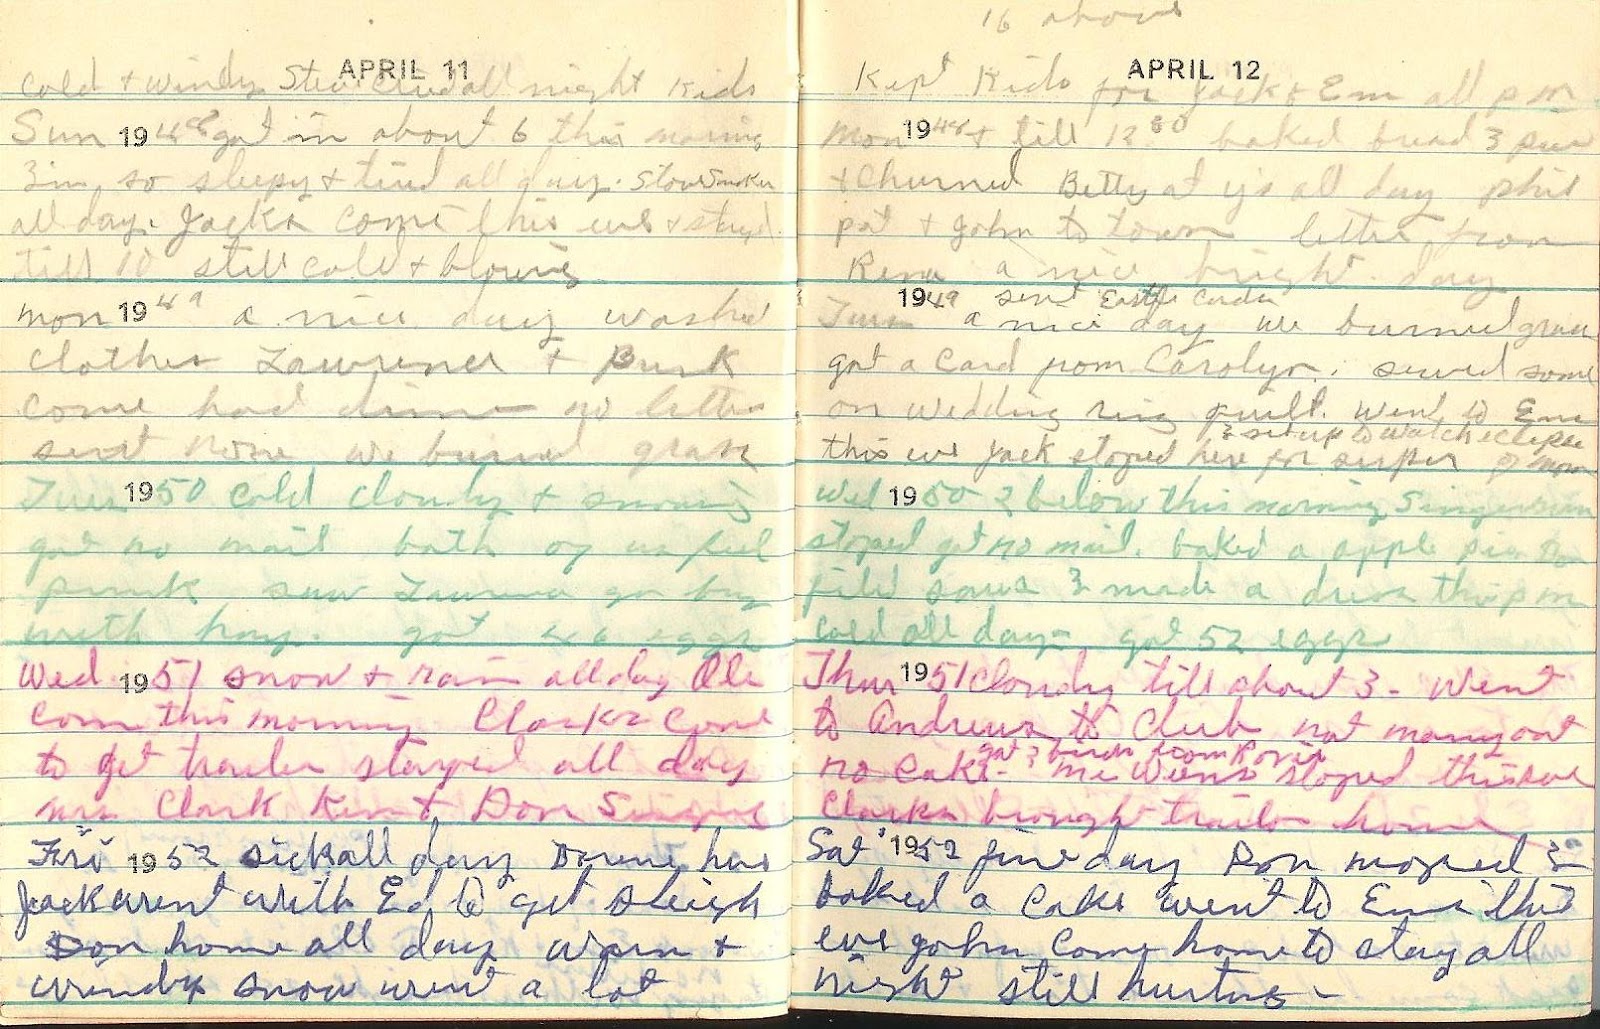 APRIL 11
cold + windy Steve cried all night Kids
Sun 1948 got in about 6 this morning
3 in, so sleepy + tired all day. Stove Smoker
all day. Jacks come this eve + stayed
till 10 still cold + blowing
Mon 1949 a nice day washed
clothes Lawrence + Bunk
come had dinner no letter
sent none we burned grass
Tues 1950 cold cloudy + snowing
got no mail both of us feel
punk saw Lawrence go by
with hay. got 46 eggs
Wed 1951 snow + rain all day Ole
come this morning Clarks come
to get trailer stayed all day
mrs Clark Kent + Don
Fri 1952 sick all day here
Jack went with Ed to get sleigh
Don home all day warm +
windy snow went a lot
16 above
APRIL 12
Kept Kids for Jack & Em all pm
Mon 1948 + till 12 baked bread 3 pies
+ Churned Betty at all day phil
pat + John to town letter from
Rena a nice bright day
1949 sent Easter Cards
Tues a nice day we burned grass
got a Card from Carolyn. sewed some
on wedding ring quilt. Went to Ems
& set up to watch eclipse
this eve Jack stoped here for supper of moon
Wed 1950 2 below this morning
stoped got no mail. baked a apple pie
filed saws & made a dress this pm
cold all day - got 52 eggs
Thur 1951 cloudy till about 3 - Went
to Andrews to Club not many out
got 3 birds from
no cake - Mr stoped this eve
Clarks brought trailer home
Sat 1952 fine day Don moped
baked a cake went to Ems this
eve John come home to stay all
night still hurting -